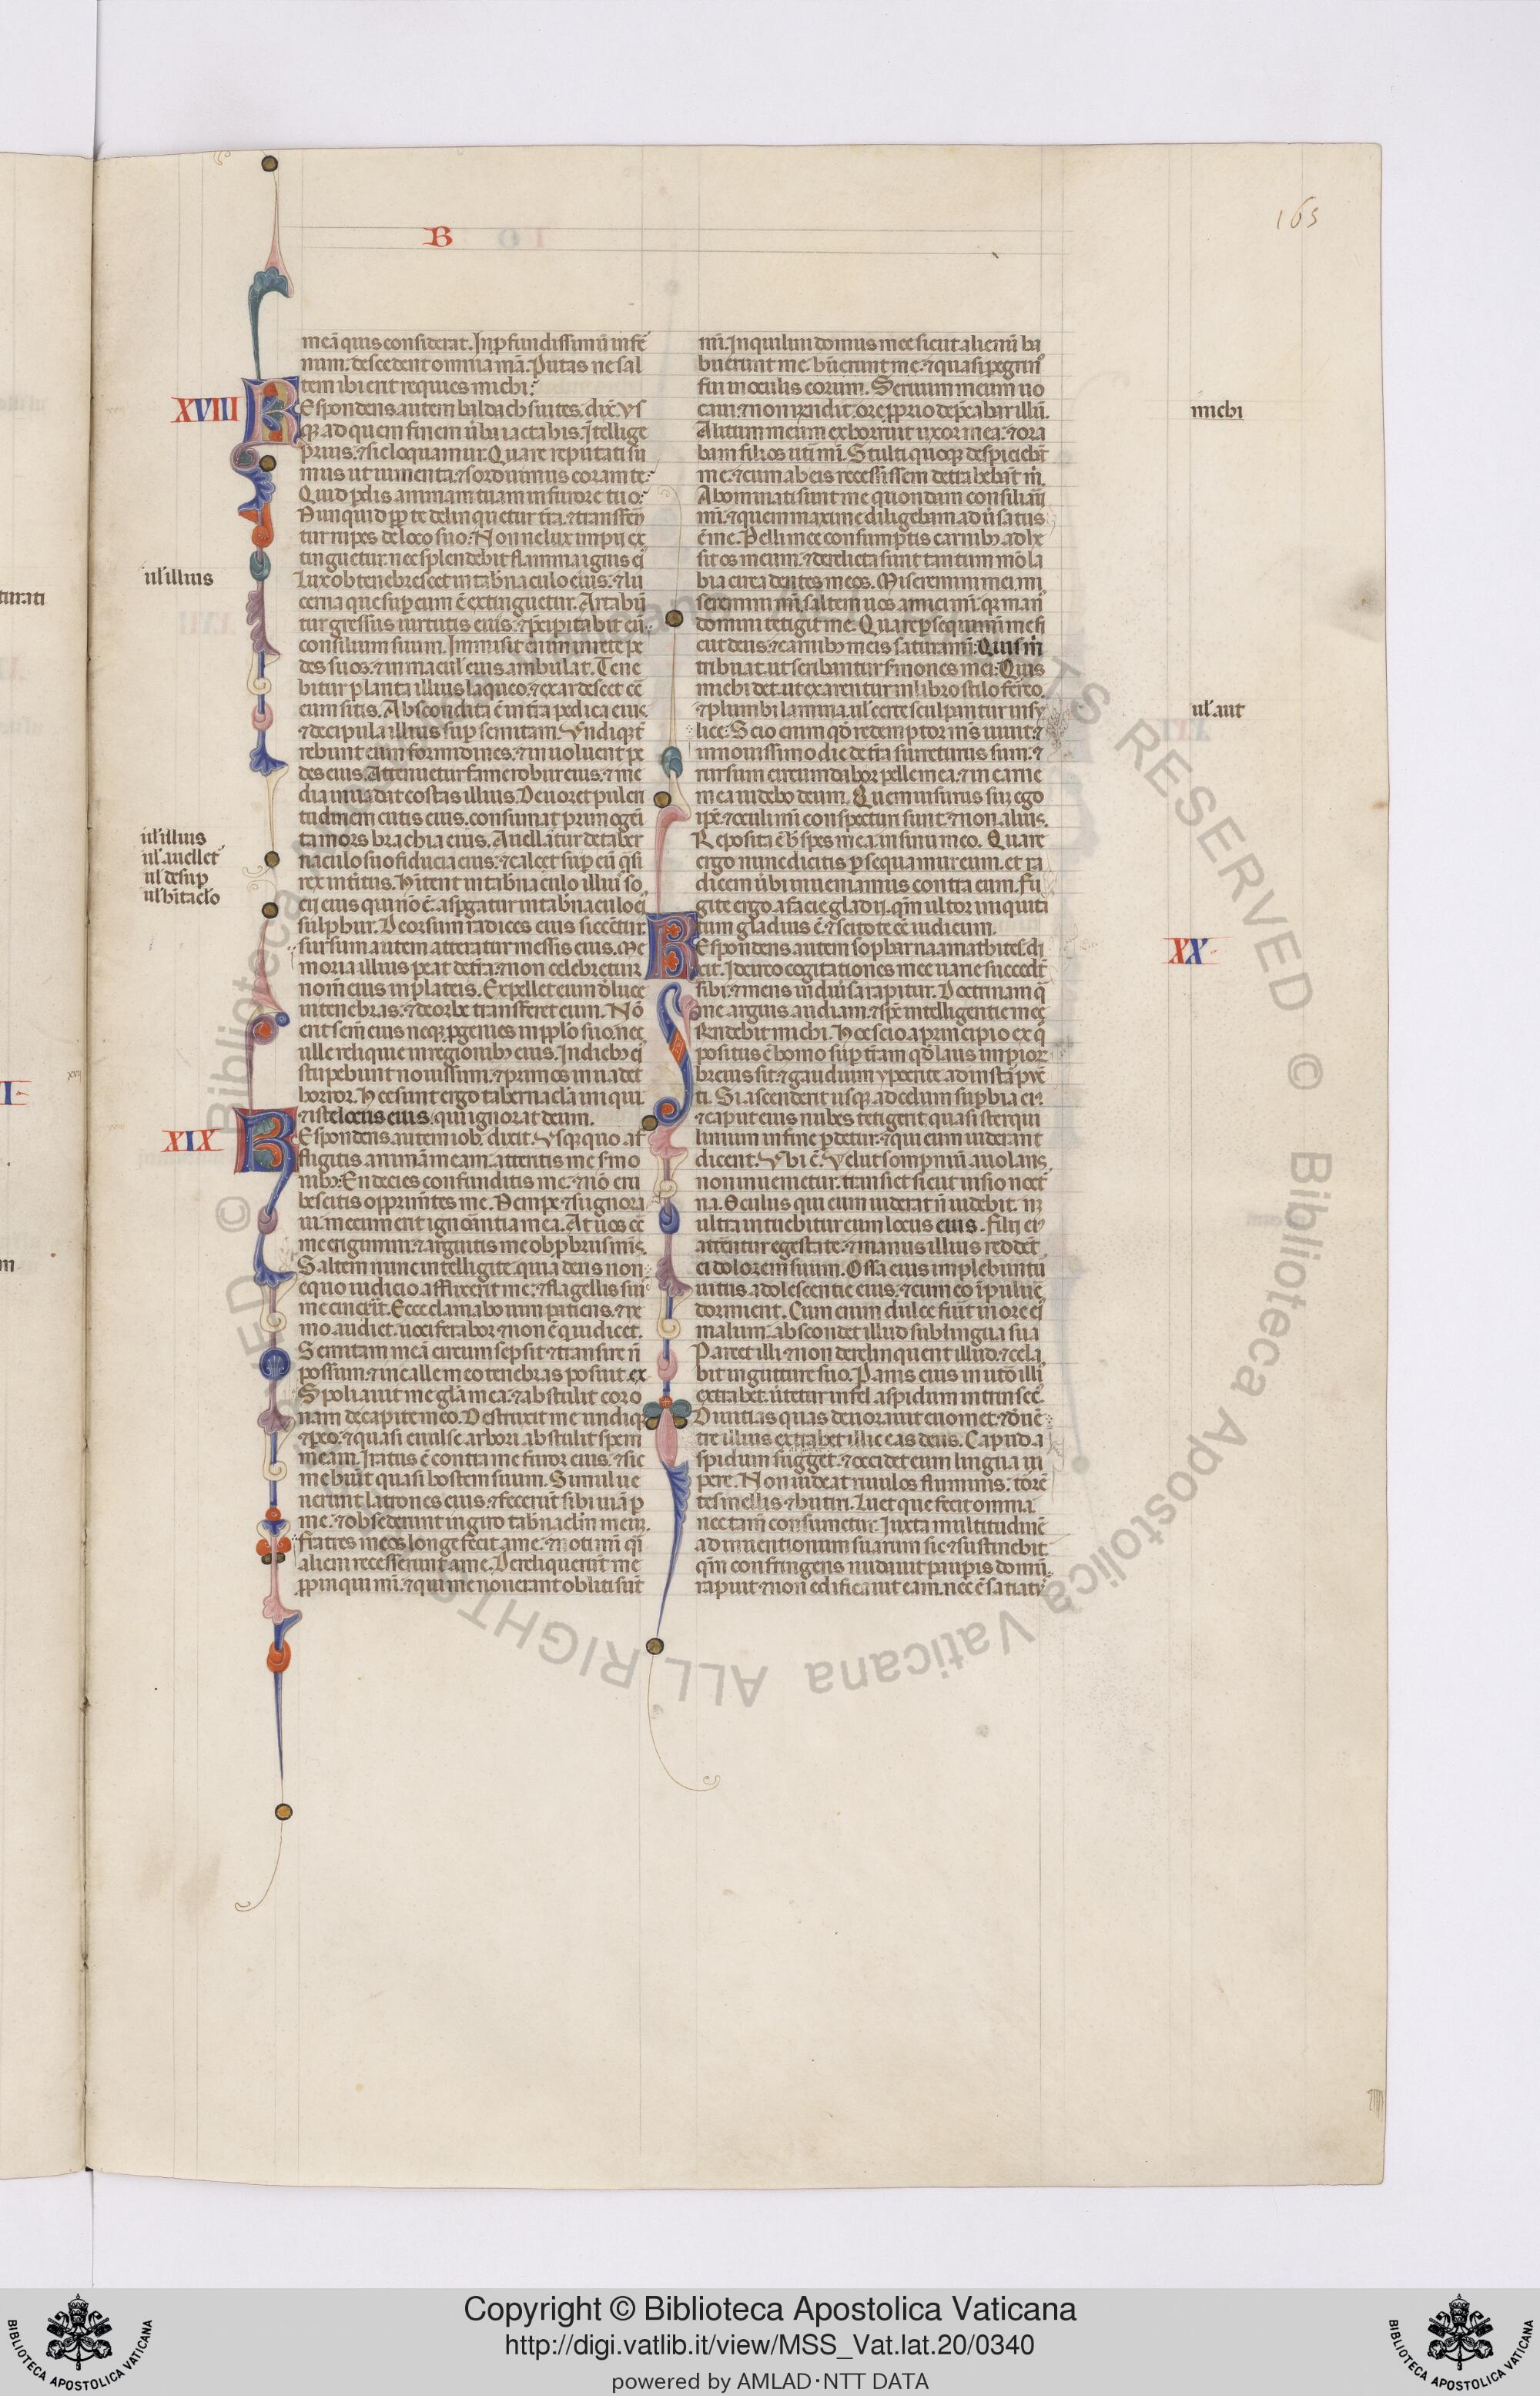 165
B
meā quis considerat. In p̱fundissimū infer
num. descēdent omnia mā. Putas ne sal
tem ibi erit requies michi?
XVIII
REspondens autem baldach suites. dix̄. Vs
qꝫ ad quem finem ūba iactabis. Ītellige
prius. ⁊ sic loquamur. Quare reputati su
mus ut iumenta. ⁊ sorduimus coram te.
Quid p̱dis animam tuam in furore tuo.
Nunquid ꝓp̱ te delinquetur tr̄a. ⁊ transferen
tur rupes de loco suo. Nonne lux impij ex
tinguetur. nec splendebit flamma ignis ei
Lux obtenebrescet in tab̄naculo eius. ⁊ lu
cerna que sup̱ eum ē extinguetur. Artabū
tur gressus uirtutis eius. ⁊ p̄cipitabit eū
consilium suum. Immisit enim in rete pe
des suos. ⁊ in macul̄ eius ambulat. Tene
bitur planta illius laqueo. ⁊ exardescet cō
eum sitis. Abscondita ē in tr̄a pedica eius
⁊ decipula illius sup̱ semitam. Vndiqꝫ t̄
rebunt eum formidines. ⁊ inuoluent pe
des eius. Attenuetur fame robur eius. ⁊ ine
dia inuadat costas illius. Deuoret pulcri
tudinem cutis eius. consumat primogeni
ta mors brachia eius. Auellātur de taber
naculo suo fiducia eius. ⁊ calcet sup̱ eū q̄si
rex int̄itus. Hītent in tab̄naculo illius so
cij eius qui nō ē. asp̱gatur in tab̄naculo ei
sulphur. Deorsum radices eius siccētur.
sursum autem atteratur messis eius. Me
moria illius p̱eat de tr̄a. ⁊ non celebretur
nom̄ eius in plateis. Expellet eum d̄ luce
in tenebras. ⁊ de orbe transferet eum. Nō
erit sem̄ eius neqꝫ p̱genies in ppl̄o suo. nec
ulle reliquie in regionibꝫ eius. In diebꝫ ei
stupebunt nouissimi. ⁊ primos inuadet
horror. Hec sunt ergo tabernac̄la iniqui
⁊ iste locus eius. qui ignorat deum.
XIX
REspondens autem iob. dixit. Vsqꝫ quo af
fligitis animā meam. attentis me s̄mo
nibꝫ. En decies confunditis me. ⁊ nō eru
bescitis opprim̄tes me. Nempe ⁊ si ignora
ui. mecum erit ignorātia mea. At uos cō
me erigimini. ⁊ arguitis me obp̱briis meis.
Saltem nunc intelligite. quia deus non
equo iudicio afflixerit me. ⁊ flagellis suis
me cinxerit. Ecce clamabo uim patiens. ⁊ ne
mo audiet. uociferabor ⁊ non ē qui dicet.
Semitam meā circum sepsit ⁊ transire n̄
possum. ⁊ in calle meo tenebras posuit. ex
Spoliauit me gl̄a mea. ⁊ abstulit coro
nam de capite meo. Destruxit me undiqꝫ
⁊ p̱eo. ⁊ quasi euulse arbori abstulit spem
meam. Iratus ē contra me furor eius. ⁊ sic
me huit quasi hostem suum. Simul ue
nerunt latrones eius. ⁊ fecerūt sibi uiā p̱
me. ⁊ obsederunt in giro tab̄nac̄lm meum.
fratres meos longe fecit a me. ⁊ noti mī q̄si
alieni recesserunt a me. Dereliquerunt me
ꝓpinqui mī. ⁊ qui me nouerant obliti sūt
ul̄ illius
ul̄ illius
ul̄ auellet
ul̄ desup̱
ul̄ hītac̄lo
mī. Inquilini domus mee sicut alienū ha
buerunt me. ⁊ quasi p̱egrin
fui in oculis eorum. Seruum meum uo
caui. ⁊ non r̄ndit. ore ꝓprio dep̄cabar illū.
Alitum meum exhorruit uxor mea. ⁊ ora
bam filios ut̄i mī. Stulti quoqꝫ despiciebāt
me. ⁊ cum ab eis recessissem detrahebāt m̄.
Abominati sunt me quondam consiliarij
mī. ⁊ quem maxime diligebam aduersatus
ē me. Pelli mee consumptis carnibꝫ adhe
sit os meum. ⁊ derelicta sunt tantummō la
bia circa dentes meos. Miseremini mei. mi
seremini mī. saltem uos amici mī. quia man
domini tetigit me. Quare p̱sequimini me si
cut deus. ⁊ carnibꝫ meis saturamī. Quis m̄
tribuat. ut scribantur s̄mones mei. Quis
michi det. ut exarentur in libro stilo ferreo.
⁊ plumbi lamina. ul̄ certe sculpantur in sy
lice. Scio enim qd̄ redemptor m̄s uiuit. ⁊
in nouissimo die de tr̄a surrecturus sum. ⁊
rursum circumdabor pelle mea. ⁊ in carne
mea uidebo deum. Quem uisurus sum ego
ip̄e. ⁊ oculi mī conspecturi sunt. ⁊ non alius.
Reposita ē h̄ spes mea in sinu meo. Quare
ergo nunc dicitis p̱sequamur eum. et ra
dicem ūbi inueniamus contra eum. Fu
gite ergo a facie gladij. qm̄ ultor iniquita
tum gladius ē. ⁊ scitote cē iudicium.
XX
REspondens autem sophar naamathites. di
cit. Idcirco cogitationes mee uarie succedūt
sibi. ⁊ mens in diūsa rapitur. Doctrinam q̄
me arguis audiam. ⁊ spē intelligentie mee
r̄ndebit michi. Hoc scio a principio ex q̄
positus ē homo sup̱ tr̄am qd̄ laus impior
breuis sit. ⁊ gaudium ypocrite ad instar pūc
ti. Si ascenderit usqꝫ ad celum sup̱bia ei.
⁊ caput eius nubes tetigerit. quasi sterqui
linium in fine p̱detur. ⁊ qui eum uiderant
dicent. Vbi ē. Velut sompnium auolans
non inuenietur. transiet sicut uisio noct
na. Oculus qui eum uiderat n̄ uidebit. nꝫ
ultra intuebitur eum locus eius. Filij ei
atterētur egestate. ⁊ manus illius reddēt
ei dolorem suum. Ossa eius implebuntur
uitiis adolescentie eius. ⁊ cum eo ī puluere
dormient. Cum enim dulce fuit in ore ei
malum. abscondet illud sub lingua sua
Parcet illi ⁊ non derelinquent illud. ⁊ cela
bit in gutture suo. Panis eius in utō illi
extrahet. ūtetur in fel aspidum intrinsec̄.
Diuitias quas deuorauit euomet. ⁊ d̄ uen
tre illius extrahet illic eas deus. Capud a
spidum sugget. ⁊ occidet eum lingua ui
pere. Non uideat riuulos fluminis. torrē
tes mellis ⁊ butiri. Luet que fecit omnia.
nec tam̄ consumetur. Iuxta multitudinē
adinuentionum suarum sic ⁊ sustinebit.
qm̄ confringens nudauit paup̱is domū.
rapuit ⁊ non edificauit eam. nec ē satiatꝰ
michi
ul̄ aut
© Biblioteca Apostolica Vaticana ALL RIGHTS RESERVED
Copyright © Biblioteca Apostolica Vaticana
http://digi.vatlib.it/view/MSS_Vat.lat.20/0340
powered by AMLAD·NTT DATA
BIBLIOTECA APOSTOLICA VATICANA
BIBLIOTECA APOSTOLICA VATICANA